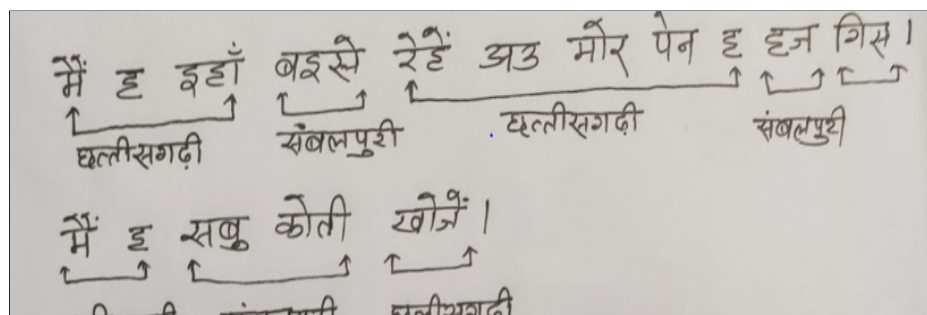 मैं ह इहाँ बइसे रेहें अउ मोर पेन ह हज गिस।
छत्तीसगढ़ी संबलपुरी छत्तीसगढ़ी संबलपुरी
मैं ह सबु कोती खोजें।
छत्तीसगढ़ी